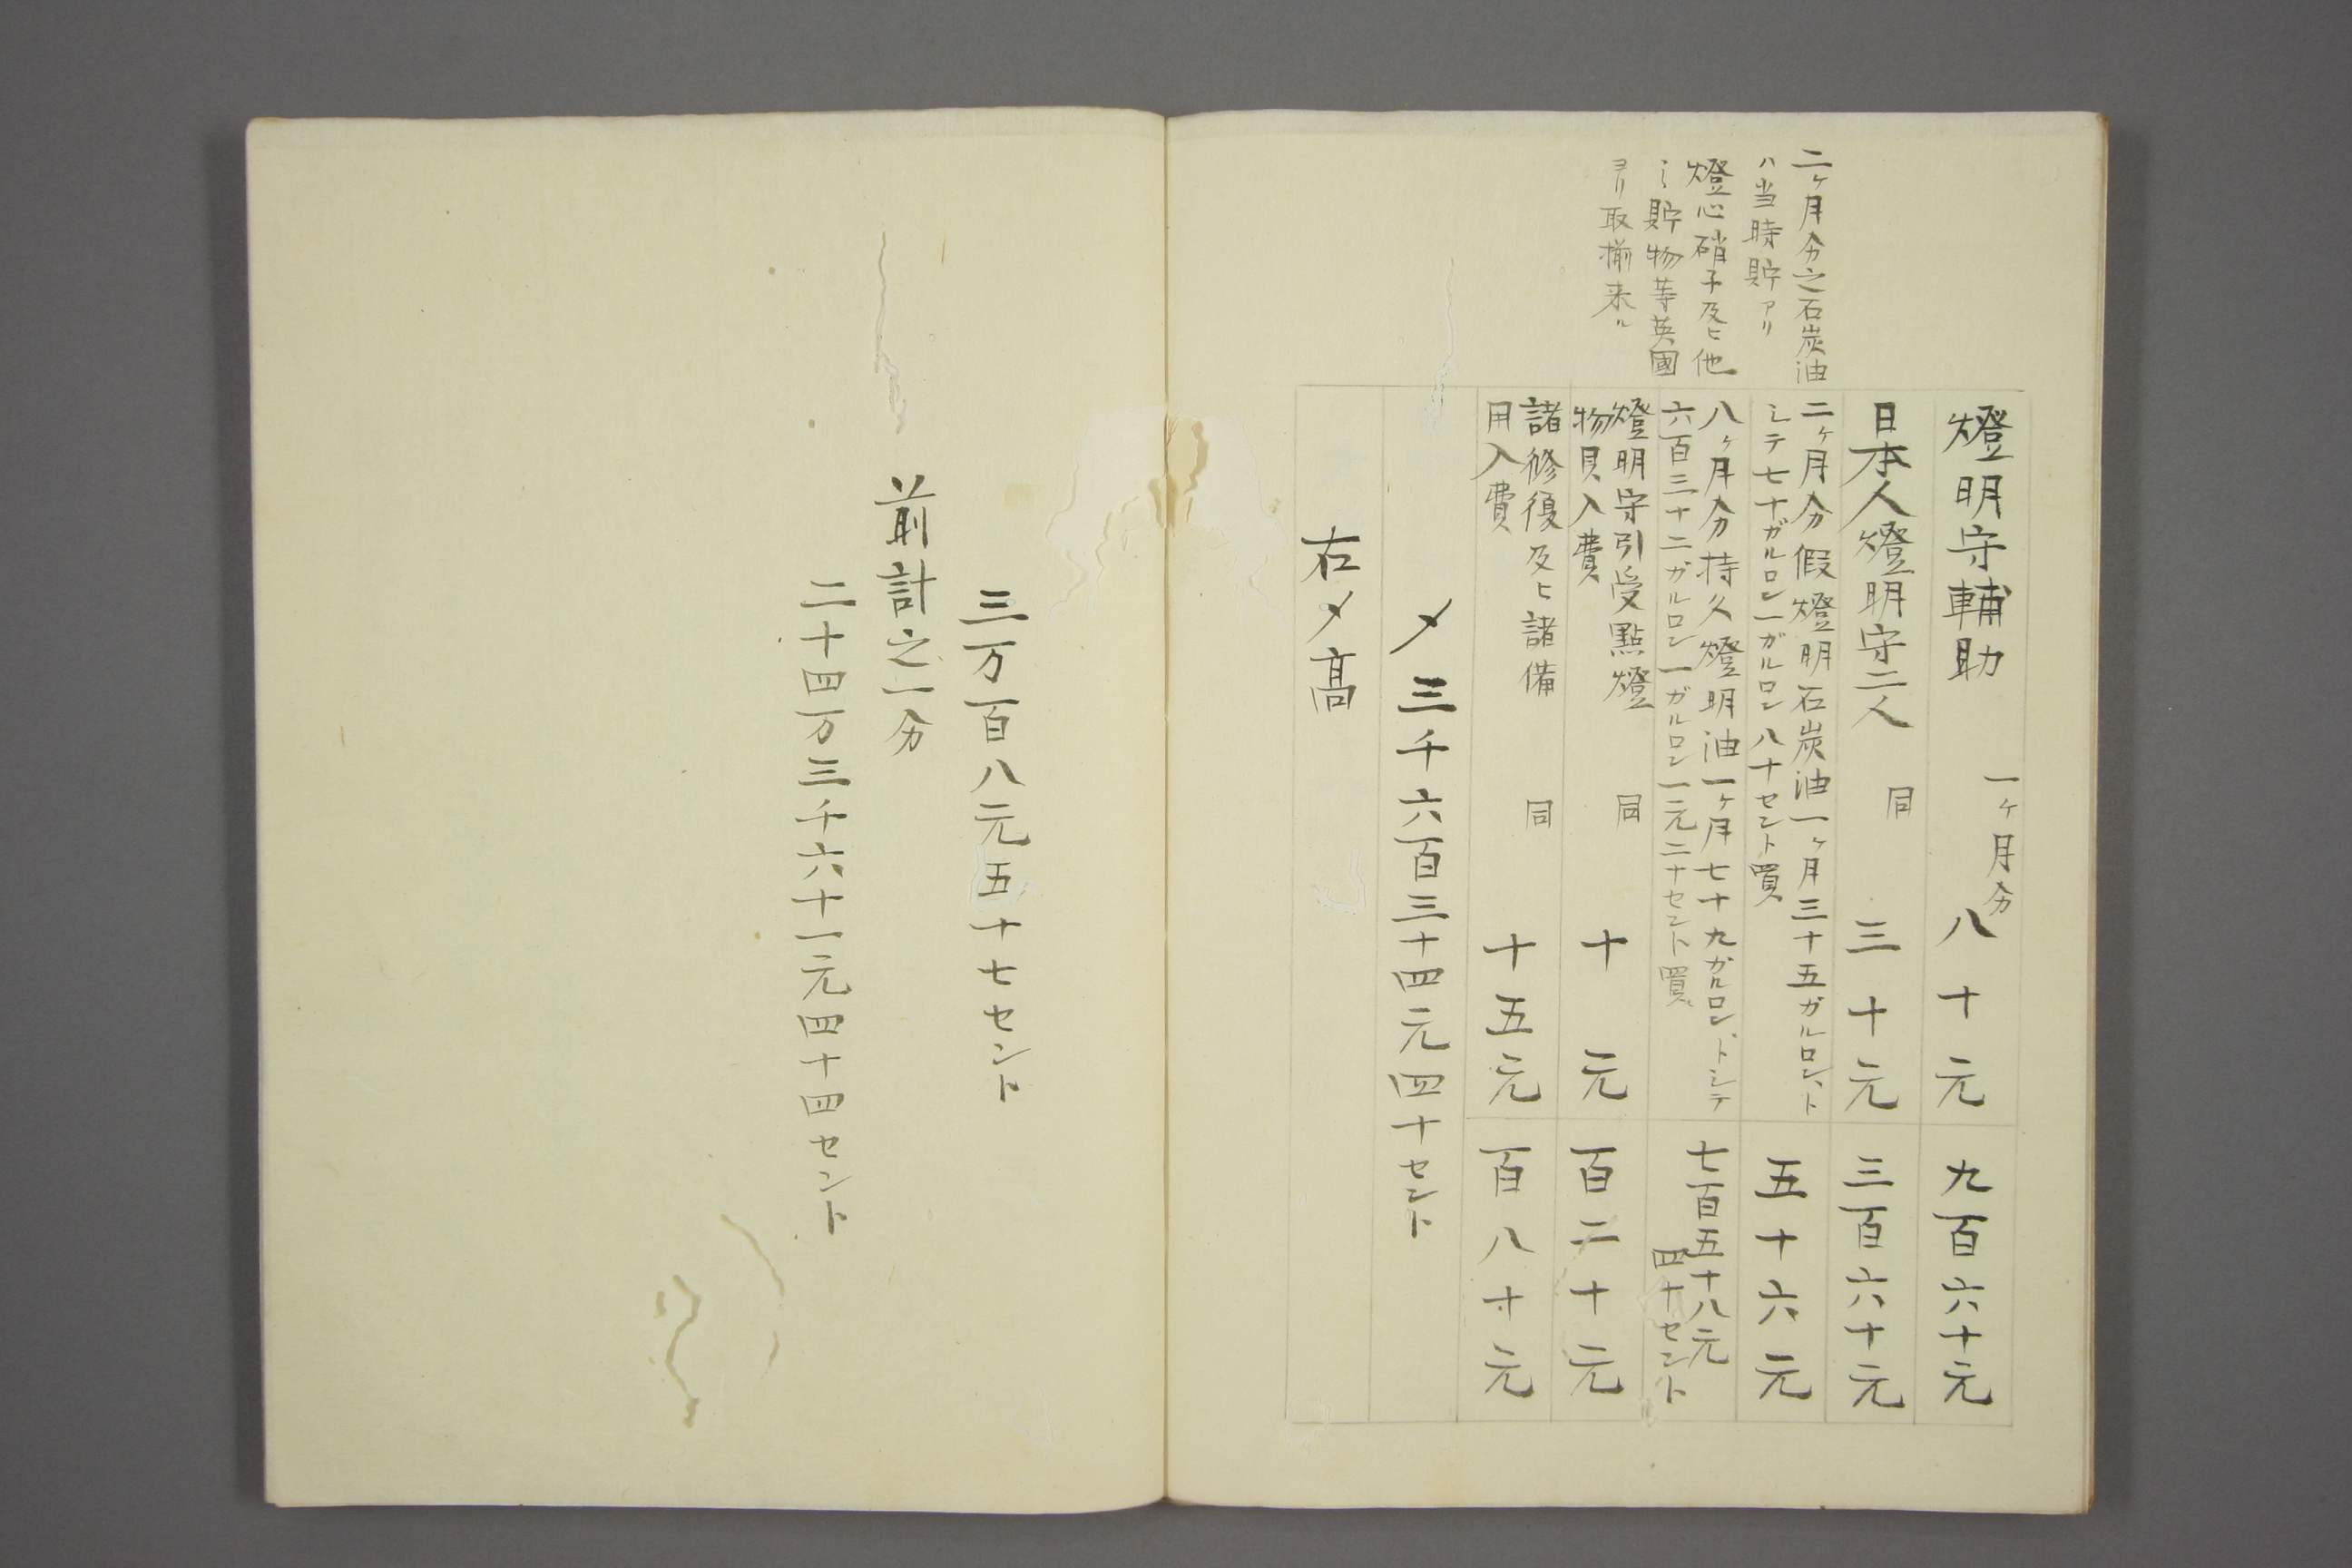 二ヶ月分之石炭油
ハ当時貯アリ
燈心硝子及ヒ他
ミ貯物等英國
ヨリ取揃来ル
燈明守輔助 一ヶ月分 八十元 九百六十元
日本人燈明守二人 同 三十元 三百六十元
二ヶ月分假燈明石炭油一ヶ月三十五ガルロント
シテ七十ガルロン一ガルロン八十セント買 五十六元
八ヶ月分持久燈明油一ヶ月七十九ガルロンドシテ
六百三十二ガルロン一ガルロン一元二十セント買 七百五十八元
四十セント
燈明守引受點燈
物具入費 同 十元 百二十元
諸修復及ヒ諸備
用入費 同 十五元 百八十元
〆三千六百三十四元四十セント
右〆高
三万百八元五十七セント
前計之一分
二十四万三千六十一元四十四セント